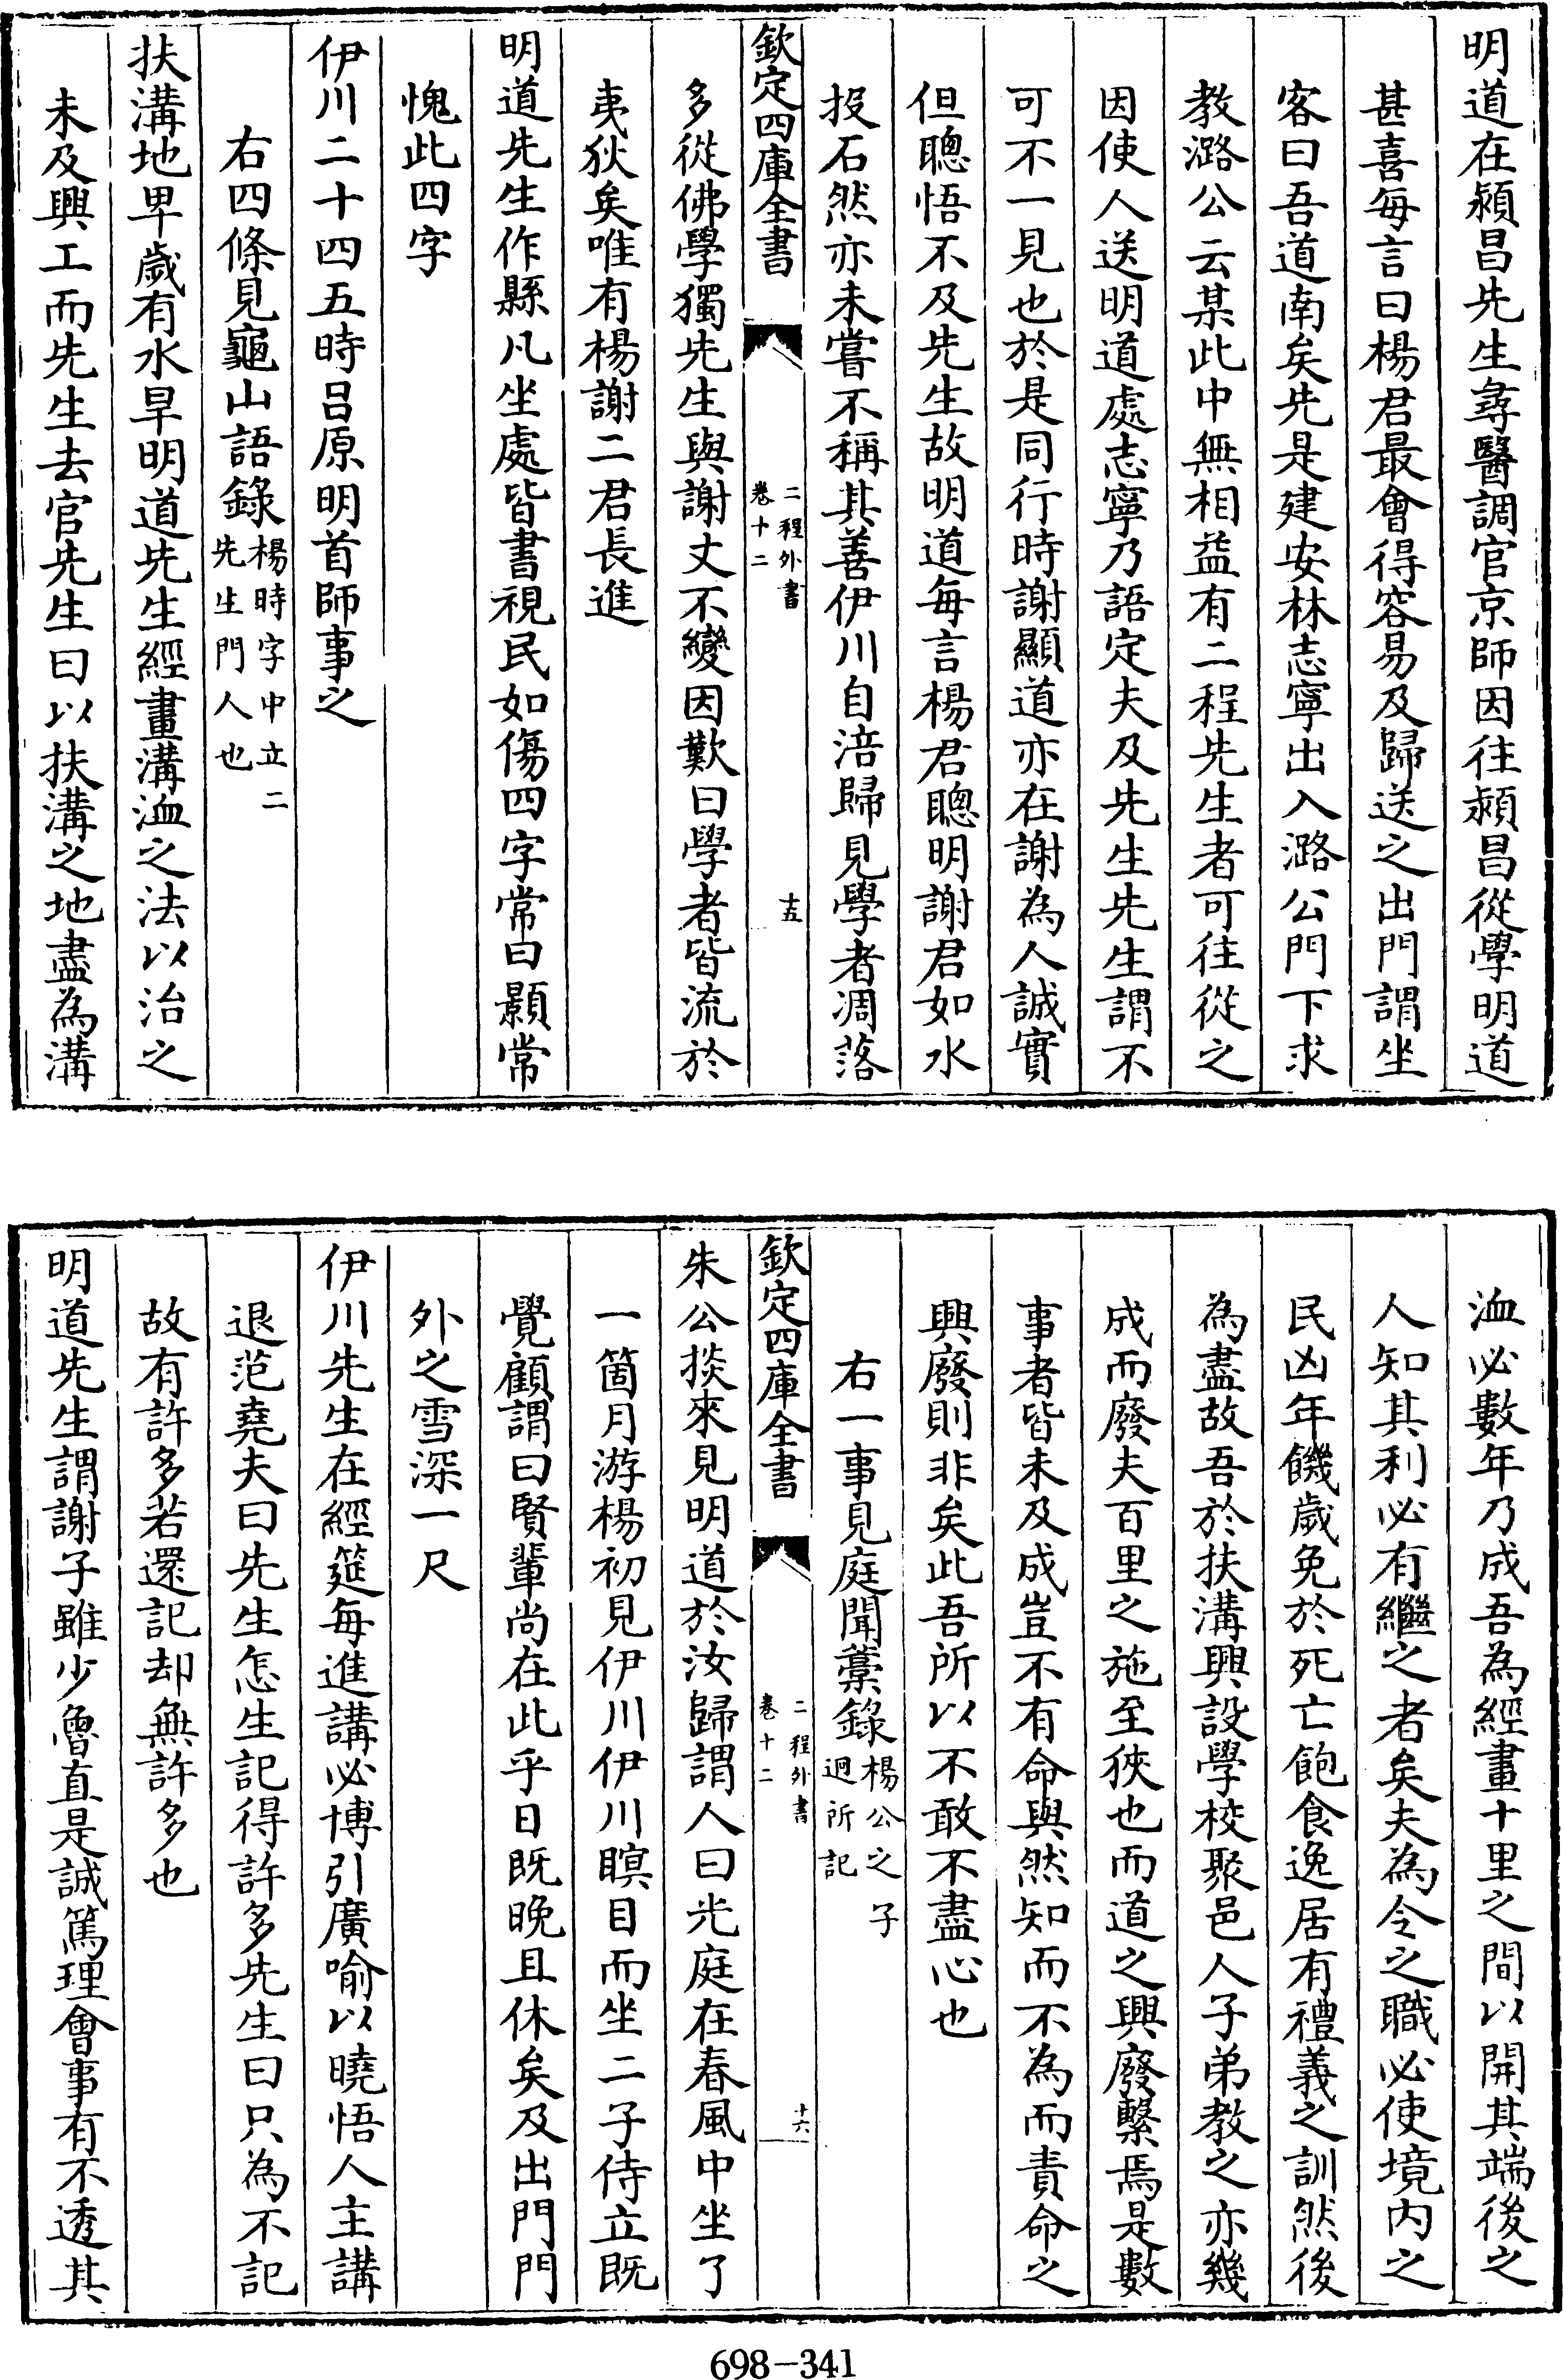 明道在潁昌先生尋醫調官京師因往潁昌從學明道
甚喜每言曰楊君最會得容易及歸送之出門謂坐
客曰吾道南矣先是建安林志寧出入潞公門下求
教潞公云某此中無相益有二程先生者可往從之
因使人送明道處志寧乃語定夫及先生先生謂不
可不一見也於是同行時謝顯道亦在謝為人誠實
但聰悟不及先生故明道每言楊君聰明謝君如水
投石然亦未嘗不稱其善伊川自涪歸見學者凋落
欽定四庫全書
二程外書
卷十二
十五
多從佛學獨先生與謝丈不變因歎曰學者皆流於
夷狄矣唯有楊謝二君長進
明道先生作縣凡坐處皆書視民如傷四字常曰顥常
愧此四字
伊川二十四五時呂原明首師事之
右四條見龜山語錄楊時字中立二
先生門人也
扶溝地卑歲有水旱明道先生經畫溝洫之法以治之
未及興工而先生去官先生曰以扶溝之地盡為溝
洫必數年乃成吾為經畫十里之間以開其端後之
人知其利必有繼之者矣夫為令之職必使境内之
民凶年饑歲免於死亡飽食逸居有禮義之訓然後
為盡故吾於扶溝興設學校聚邑人子弟教之亦幾
成而廢夫百里之施至狹也而道之興廢繫焉是數
事者皆未及成豈不有命與然知而不為而責命之
興廢則非矣此吾所以不敢不盡心也
右一事見庭聞藁錄楊公之子
迥所記
欽定四庫全書
二程外書
卷十二
十六
朱公掞來見明道於汝歸謂人曰光庭在春風中坐了
一箇月游楊初見伊川伊川瞑目而坐二子侍立既
覺顧謂曰賢輩尚在此乎日既晚且休矣及出門門
外之雪深一尺
伊川先生在經筵每進講必博引廣喻以曉悟人主講
退范堯夫曰先生怎生記得許多先生曰只為不記
故有許多若還記却無許多也
明道先生謂謝子雖少魯直是誠篤理會事有不透其
698-341